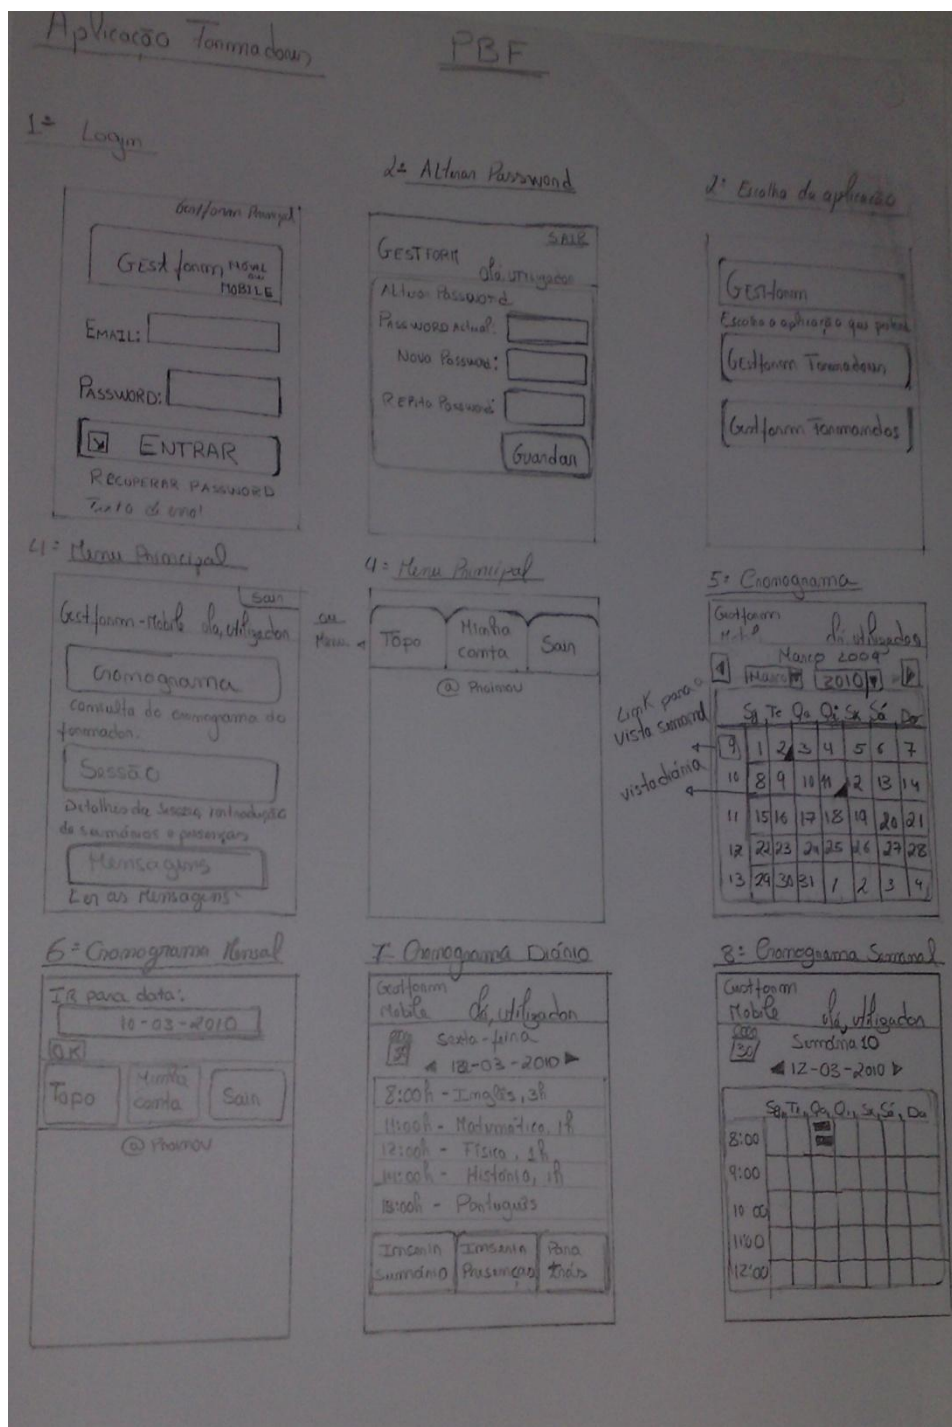 Aplicação Formadores
PBF
1º Login
Gestform Principal
GEStform MOVEL
ou
MOBILE
EMAIL:
PASSWORD:
ENTRAR
RECUPERAR PASSWORD
Texto de erro!
2º Alterar Password
SAIR
GESTFORM
Olá, utilizador
Alterar Password
PASSWORD Actual:
Nova Password:
REPita Password:
Guardar
2º Escolha da aplicação
GEStform
Escolha a aplicação que
Gestform Formadores
Gestform Formandos
4º Menu Principal
Sair
Gestform-Mobile olá, utilizador
Cronograma
Consulta do cronograma do
formador.
Sessão
Detalhes da Sessão, introdução
de sumários e presenças
Mensagens
Ler as Mensagens
ou
Menu
4º Menu Principal
Topo
Minha
conta
Sair
5º Cronograma
Gestform
Mobile
olá, utilizador
Março 2009
Março 2010
Link para a
vista semanal
vista diária
Sg Te Qa Qi Sx Sá Do
9 1 2 3 4 5 6 7
10 8 9 10 11 12 13 14
11 15 16 17 18 19 20 21
12 22 23 24 25 26 27 28
13 29 30 31 1 2 3 4
6º Cronograma Mensal
IR para data:
10-03-2010
OK
Topo
Minha
conta
Sair
7º Cronograma Diário
Gestform
Mobile
Olá, utilizador
30
Sexta-feira
12-03-2010
8:00h - Inglês, 3h
11:00h - Matemática, 1h
12:00h - Física, 1h
14:00h - História, 1h
15:00h - Português
Inserir
Sumário
Inserir
Presenças
Para
trás
8º Cronograma Semanal
Gestform
Mobile
olá, utilizador
30
Semana 10
12-03-2010
Sg Te Qa Qi Sx Sá Do
8:00
9:00
10:00
11:00
12:00